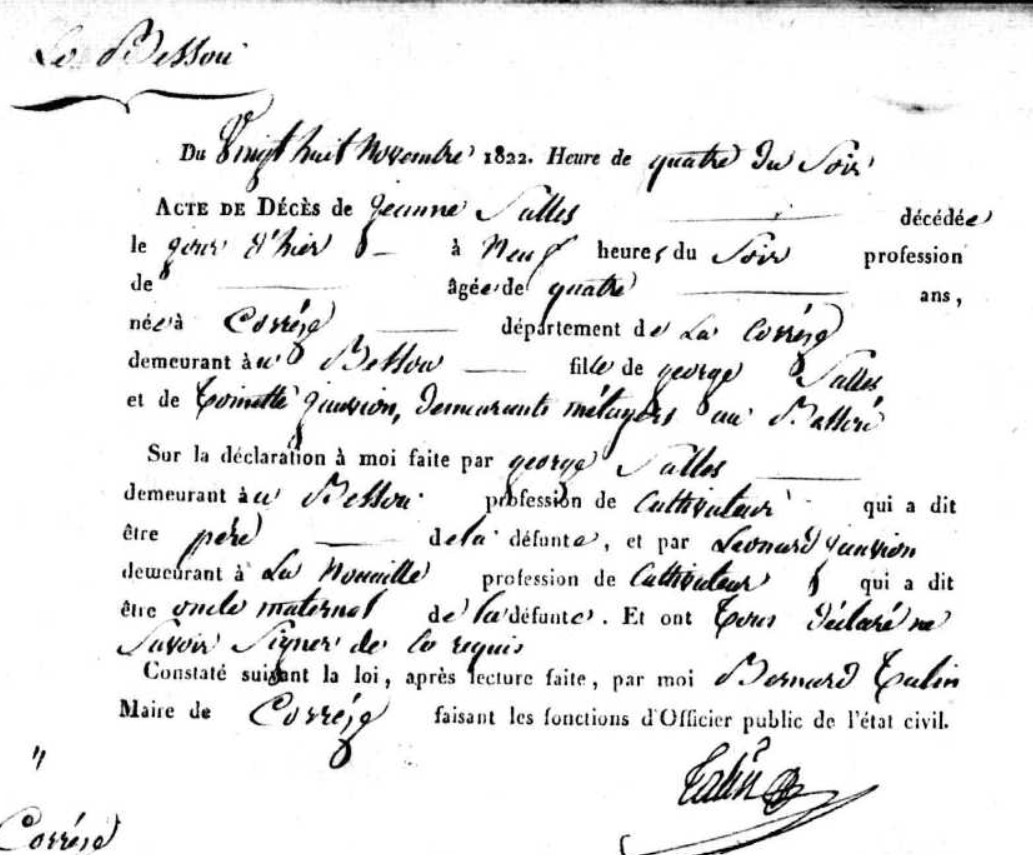 Le Bessou
Du Vingt huit Novembre 1822. Heure de quatre du Soir
ACTE DE DÉCÈS de Jeanne Salles décédée
le jour d'hier à Neuf heures du Soir profession
de âgée de quatre ans,
née à Corrèze département de La Corrèze
demeurant à u Bessou fille de george Salles
et de Toinette demeurants métayers au
Sur la déclaration à moi faite par george Salles
demeurant à u Bessou profession de Cultivateur qui a dit
être pere de la défunte, et par Leonard
demeurant à La Nouaille profession de Cultivateur qui a dit
être oncle maternel de la défunte. Et ont tous déclaré ne
Savoir Signer de ce requis
Constaté suivant la loi, après lecture faite, par moi Bernard Talin
Maire de Corrèze faisant les fonctions d'Officier public de l'état civil.
"
Talin
Corrèze